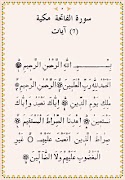 سورة الفاتحة مكية
(٧) آيات
بِسْمِ اللَّهِ الرَّحْمَٰنِ الرَّحِيمِ
الْحَمْدُ لِلَّهِ رَبِّ الْعَالَمِينَ الرَّحْمَٰنِ الرَّحِيمِ
مَالِكِ يَوْمِ الدِّينِ إِيَّاكَ نَعْبُدُ وَإِيَّاكَ
نَسْتَعِينُ اهْدِنَا الصِّرَاطَ الْمُسْتَقِيمَ
صِرَاطَ الَّذِينَ أَنْعَمْتَ عَلَيْهِمْ غَيْرِ
الْمَغْضُوبِ عَلَيْهِمْ وَلَا الضَّالِّينَ